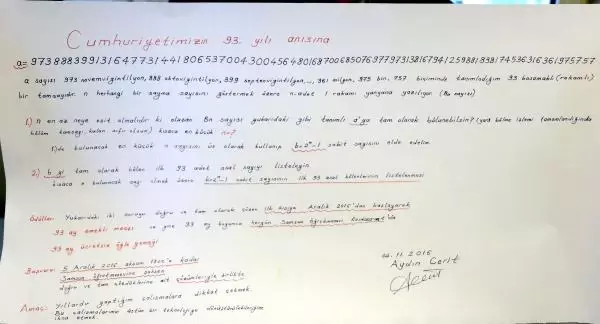 Cumhuriyetimizin 93. yılı anısına
a= 973888399131647731441806537004300456480168700685076977973138167941259881838174536316361975757
a sayısı 973 novemvigintilyon, 888 oktovigintilyon, 399 septenvigintilyon, ..., 361 milyon, 975 bin, 757 biçiminde tanımladığım 93 basamaklı (rakamlı)
bir tamsayıdır. n herhangi bir sayma sayısını göstermek üzere n adet 1 rakamı yanyana yazılıyor. (Bn sayısı)
1.) n en az neye eşit olmalıdır ki oluşan Bn sayısı yukarıdaki gibi tanımlı a'ya tam olarak bölünebilsin? (yani bölme işlemi tamamlandığında
bölüm tamsayı, kalan sıfır olsun) kısaca en küçük n=?
1)de bulunacak en küçük n sayısını üs olarak kullanıp b=2ⁿ-1 sabit sayısını elde edelim.
2.) b yi tam olarak bölen ilk 93 adet asal sayıyı listeleyin
kısaca n bulunacak sayı olmak üzere b=2ⁿ-1 sabit sayısının ilk 93 asal bölenlerinin listelenmesi
Ödüller: Yukarıdaki iki soruyu doğru ve tam olarak çözen ilk kişiye Aralık 2016'dan başlayarak
93 ay emekli maaşı ve yine 93 ay boyunca Samsun Öğretmenevi 'da
93 ay ücretsiz öğle yemeği
Başvuru: 5 Aralık 2016 akşam 18oo'e kadar
Samsun Öğretmenevine şahsen
doğru ve tam yanıtlarına ait çözümleriyle birlikte
Amaç: Yıllardır yaptığım çalışmalara dikkat çekmek.
Bu çalışmalarımı üstün bir teknolojiye dönüştürebileceğime
ikna etmek.
04.11.2016
Aydın Cerit